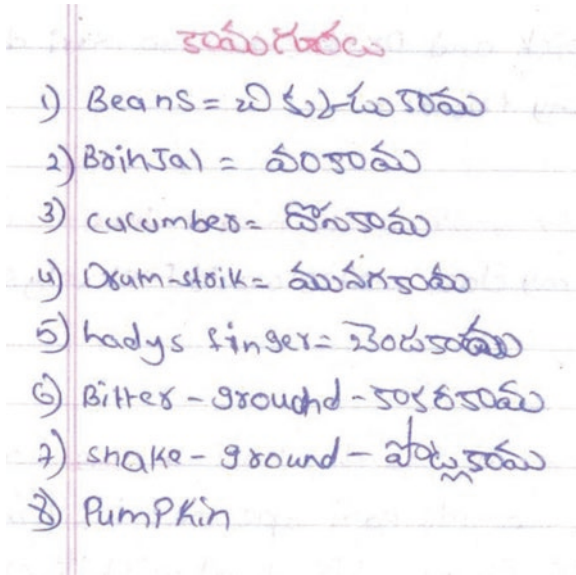 కాయగూరలు
1) Beans = చిక్కుడుకాయ
2) BrinJal = వంకాయ
3) cucumber = దోసకాయ
4) Drum-strik = మునగకాయ
5) Ladys finger = బెండకాయ
6) Bitter - grouond - కాకరకాయ
7) snake - ground - పొట్లకాయ
8) PumPkin